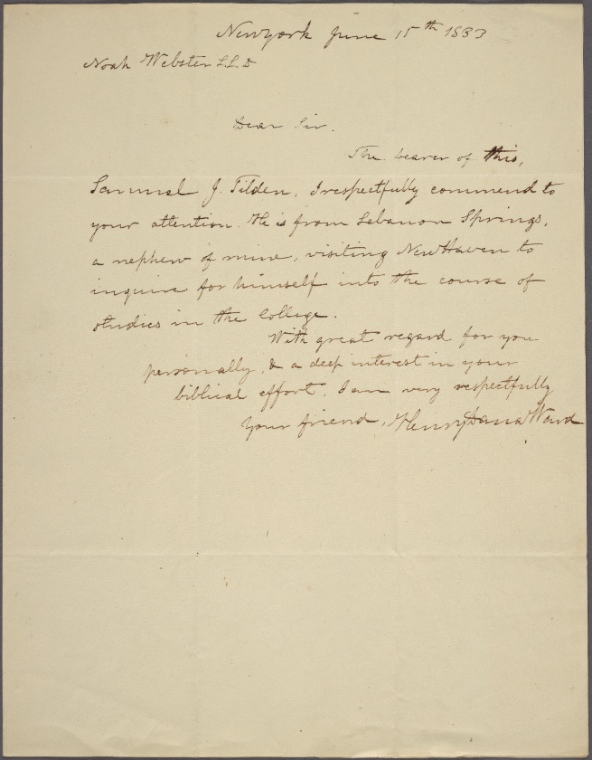 Newyork June 15th 1833
Noah Webster LLD
Dear Sir.
The bearer of this,
Samuel J. Tilden, I respectfully commend to
your attention. He is from Lebanon Springs,
a nephew of mine, visiting New Haven to
inquire for himself into the course of
studies in the College.
With great regard for you
personally, & a deep interest in your
biblical effort, I am very respectfully
Your friend, Henry Dana Ward